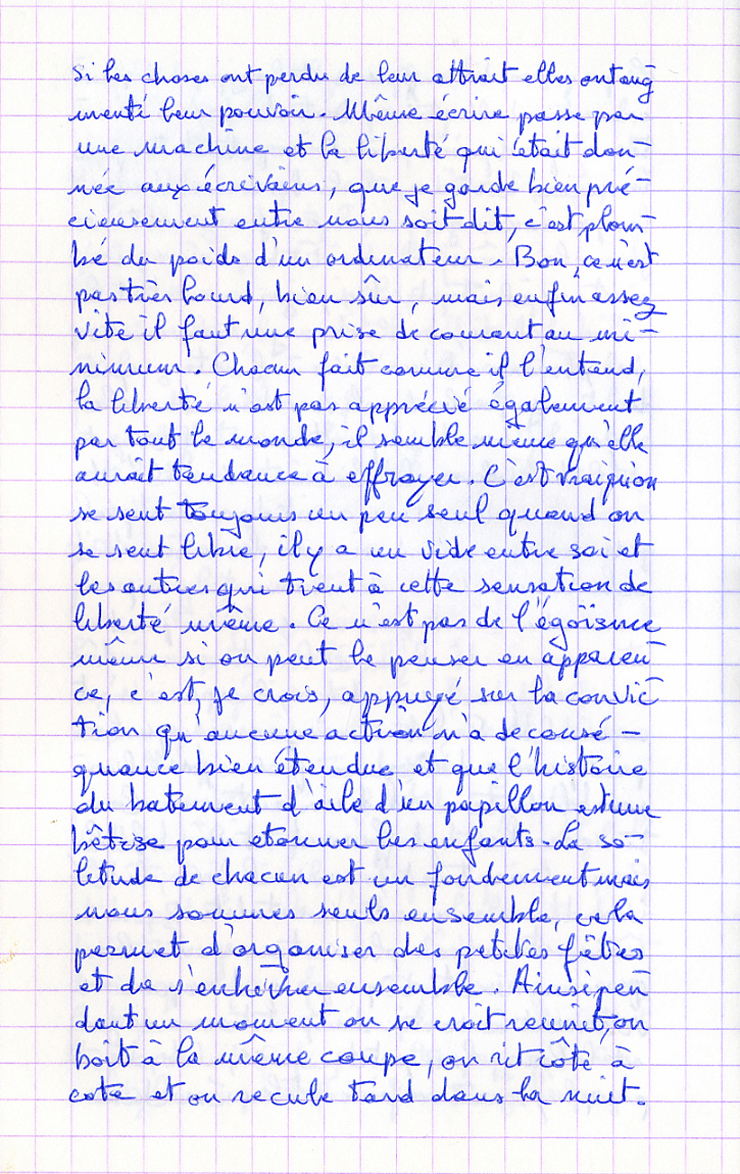 Si les choses ont perdu de leur attrait elles ont aug
menté leur pouvoir. Même écrire passe par
une machine et la liberté qui était don-
née aux écrivains, que je garde bien pré-
cieusement entre nous soit dit, c'est plom-
bé du poids d'un ordinateur. Bon, ce n'est
pas très lourd, bien sûr, mais enfin assez
vite il faut une prise de courant au mi-
nimum. Chacun fait comme il l'entend,
la liberté n'est pas apprécié également
par tout le monde, il semble même qu'elle
aurait tendance à effrayer. C'est vrai qu'on
se sent toujours un peu seul quand on
se sent libre, il y a un vide entre soi et
les autres qui tient à cette sensation de
liberté même. Ce n'est pas de l'égoïsme
même si on peut le penser en apparen
ce, c'est, je crois, appuyé sur la convic
tion qu'aucune action n'a de consé-
quence bien étendue et que l'histoire
du batement d'aile d'un papillon est une
bêtise pour etonner les enfants. La so-
litude de chacun est un fondement mais
nous sommes seuls ensemble, cela
permet d'organiser des petites fêtes
et de s'enivrer ensemble. Ainsi pen
dant un moment on se croit reunit, on
boit à la même coupe, on rit côte à
cote et on recule tard dans la nuit.